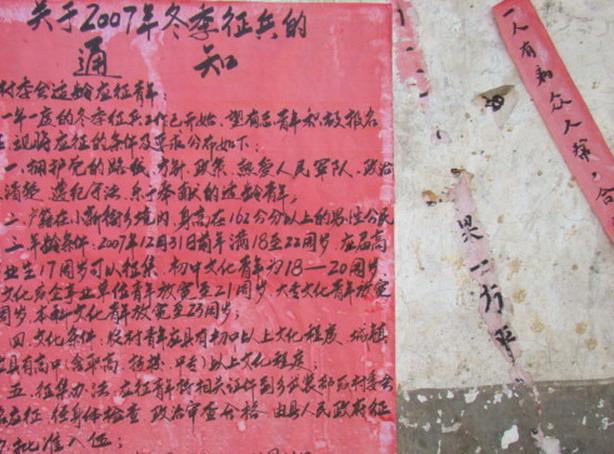 关于2007年冬季征兵的
通知
村委会适龄应征青年:
一年一度的冬季征兵工作已开始,望有志青年积极报名
现将应征的条件及要求公布如下:
一、拥护党的路线、方针、政策、热爱人民军队、政治
清楚、遵纪守法、乐于奉献的适龄青年;
二、户籍在小新街乡境内,身高在162公分以上的男性公民
三、年龄条件:2007年12月31日前年满18至22周岁,应届高
业生17周岁可以征集,初中文化青年为18—20周岁,
文化若企事业单位青年放宽至21周岁,大专文化青年放宽
周岁,本科文化青年放宽至23周岁;
四、文化条件:农村青年应具有初中以上文化程度、城镇
应具有高中(含职高、技校、中专)以上文化程度;
五、征集办法:应征青年将相关证件到乡武装部或村委会
应征,经身体检查、政治审查合格,由县人民政府征
批准入伍;
一人有和众人帮,合
果一方平